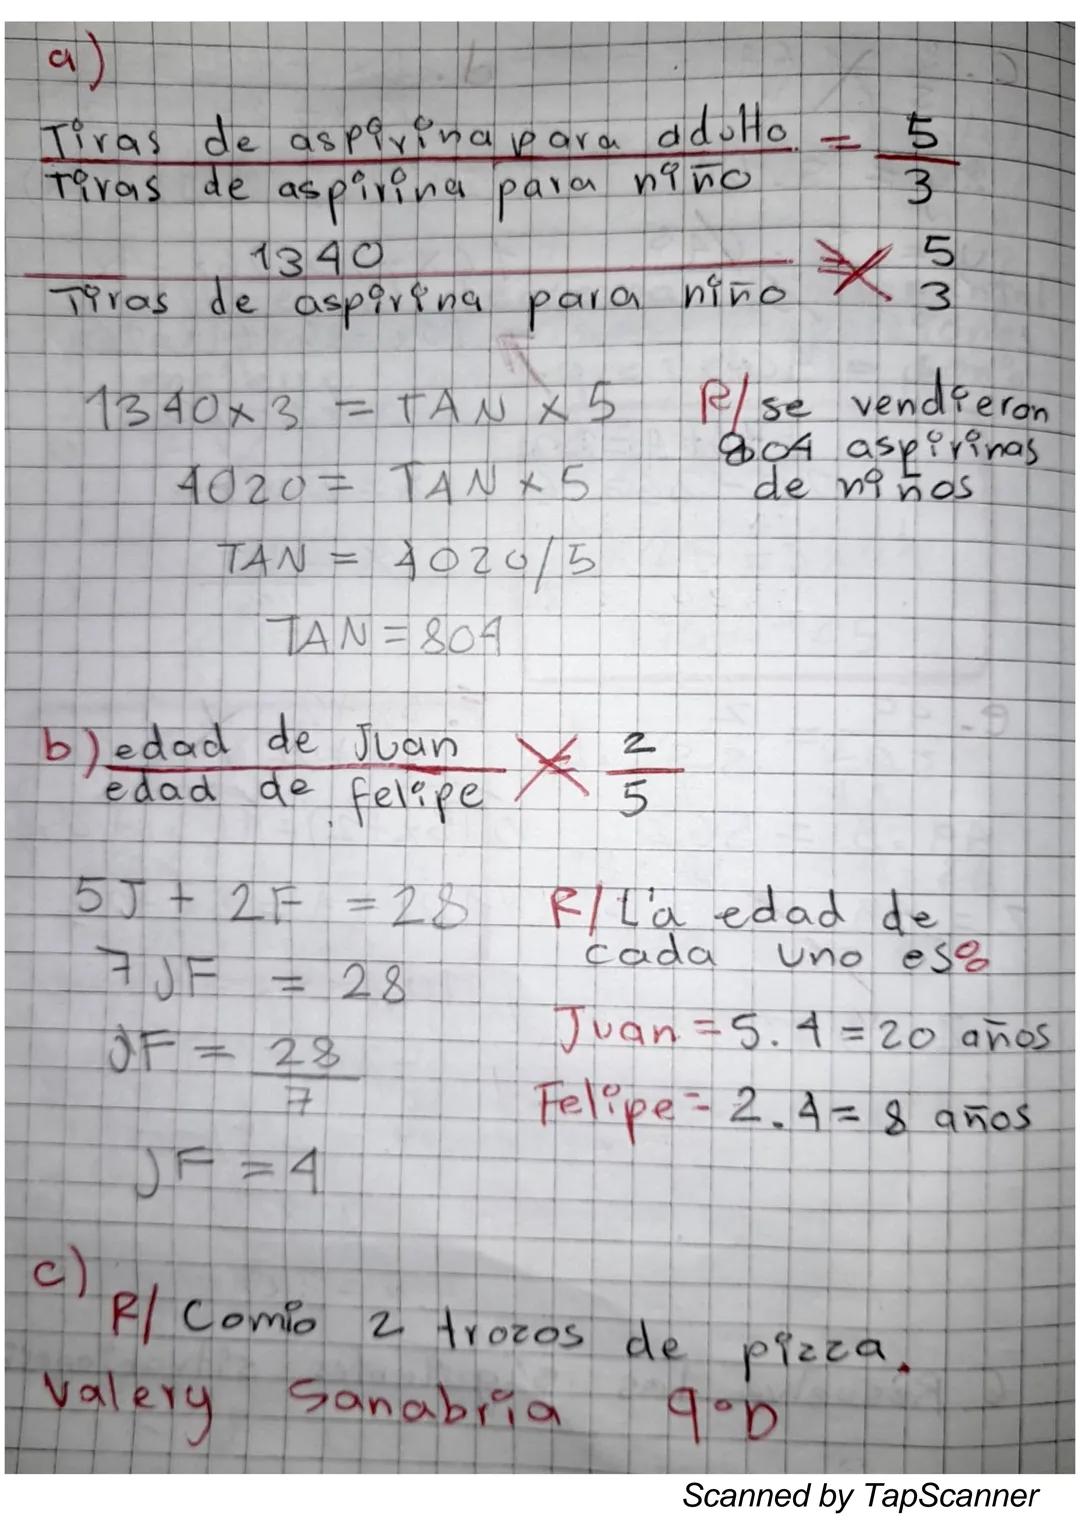 a)
Tiras de aspirina para adulto = 5
Tiras de aspirina para niño 3
1340 = 5
Tiras de aspirina para niño 3
1340 x 3 = TAN x 5
4020 = TAN x 5
TAN = 4020/5
TAN = 804
R/ se vendieron
804 aspirinas
de niños
b) edad de Juan = 2
edad de felipe 5
5J + 2F = 28
7JF = 28
JF = 28
7
JF = 4
R/ La edad de
cada uno es:
Juan = 5 . 4 = 20 años
Felipe = 2 . 4 = 8 años
c)
R/ Comio 2 trozos de pizza.
Valery Sanabria 9°D
Scanned by TapScanner